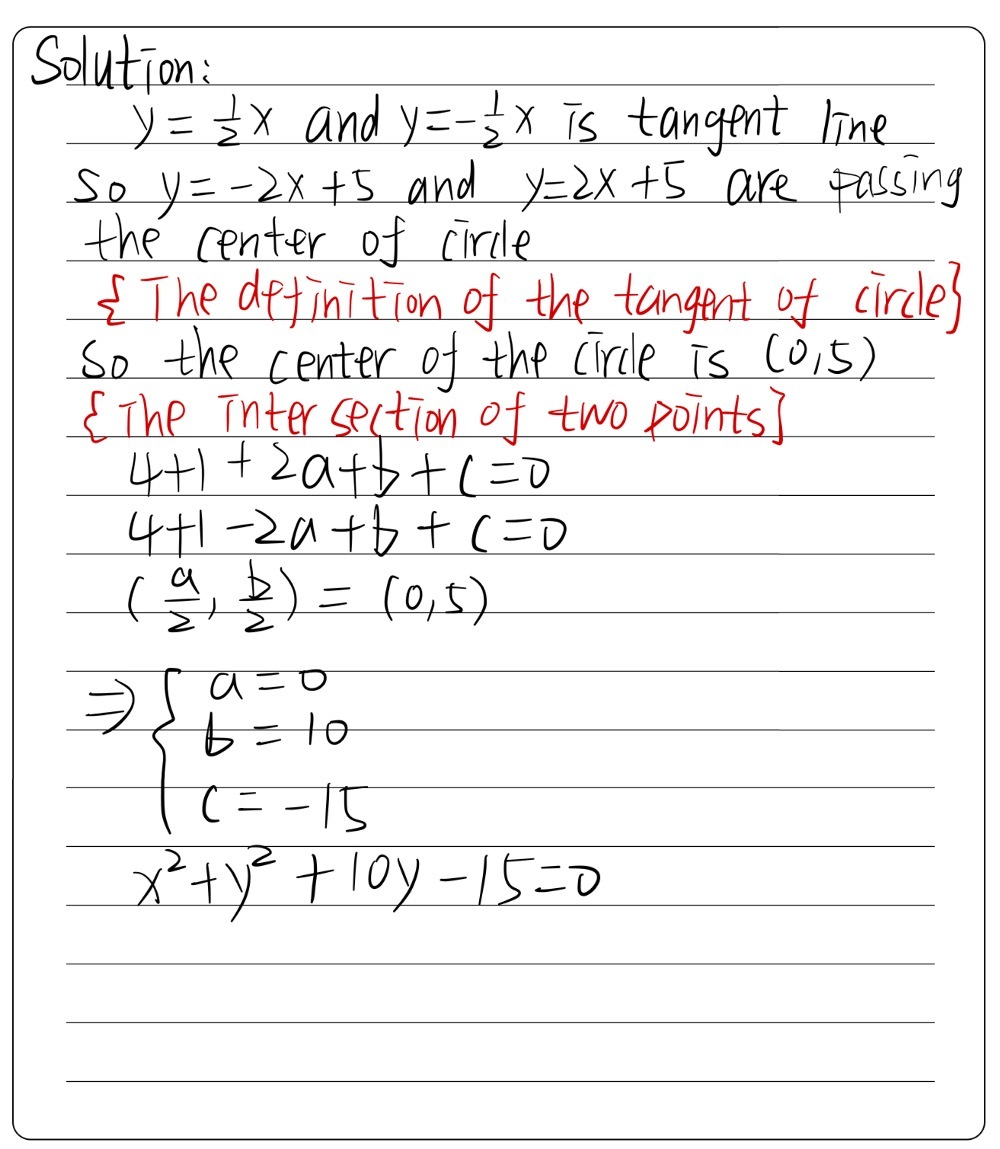 Solution:
y = 1/2 x and y=-1/2 x is tangent line
So y = -2x +5 and y=2x+5 are passing
the center of circle
{The definition of the tangent of circle}
So the center of the circle is (0,5)
{The intersection of two points}
4+1 + 2a+b+c=0
4+1 -2a+b+c=0
(a/2, b/2) = (0,5)
⇒ { a=0
b = 10
c = -15
x²+y² +10y -15=0